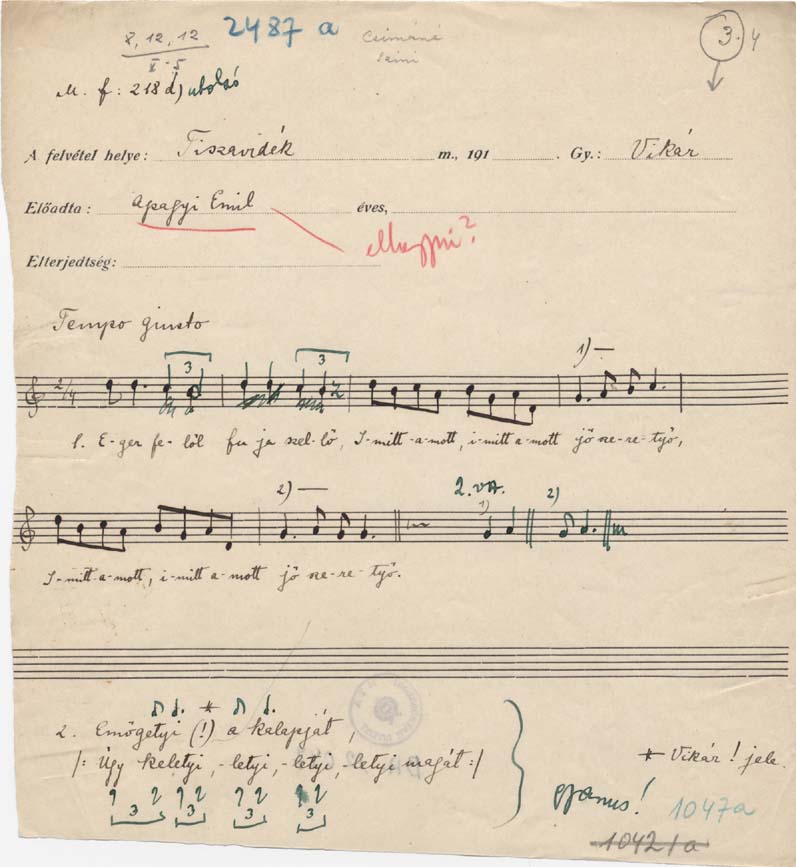 8, 12, 12 2487 a 3. 4
M. f: 218 d) utolsó
A felvétel helye: Tiszavidék m., 191 . Gy.: Vikár
Előadta: Apagyi Emil éves,
Elterjedtség:
Tempo giusto
3 3 1)
2/4
1. E-ger fe-löl fu ja szel-lö, I-mitt-a-mott, i-mitt a-mott jö sze-re-työ,
2) 2. VA. 1) 2)
I-mitt-a-mott, i-mitt a-mott jö sze-re-työ.
2. Emögetyi (!) a kalapját,
|: Úgy keletyi, -letyi, -letyi, letyi magát :|
* Vikár ! jele.
3 3 3 3
1047a
1042/a